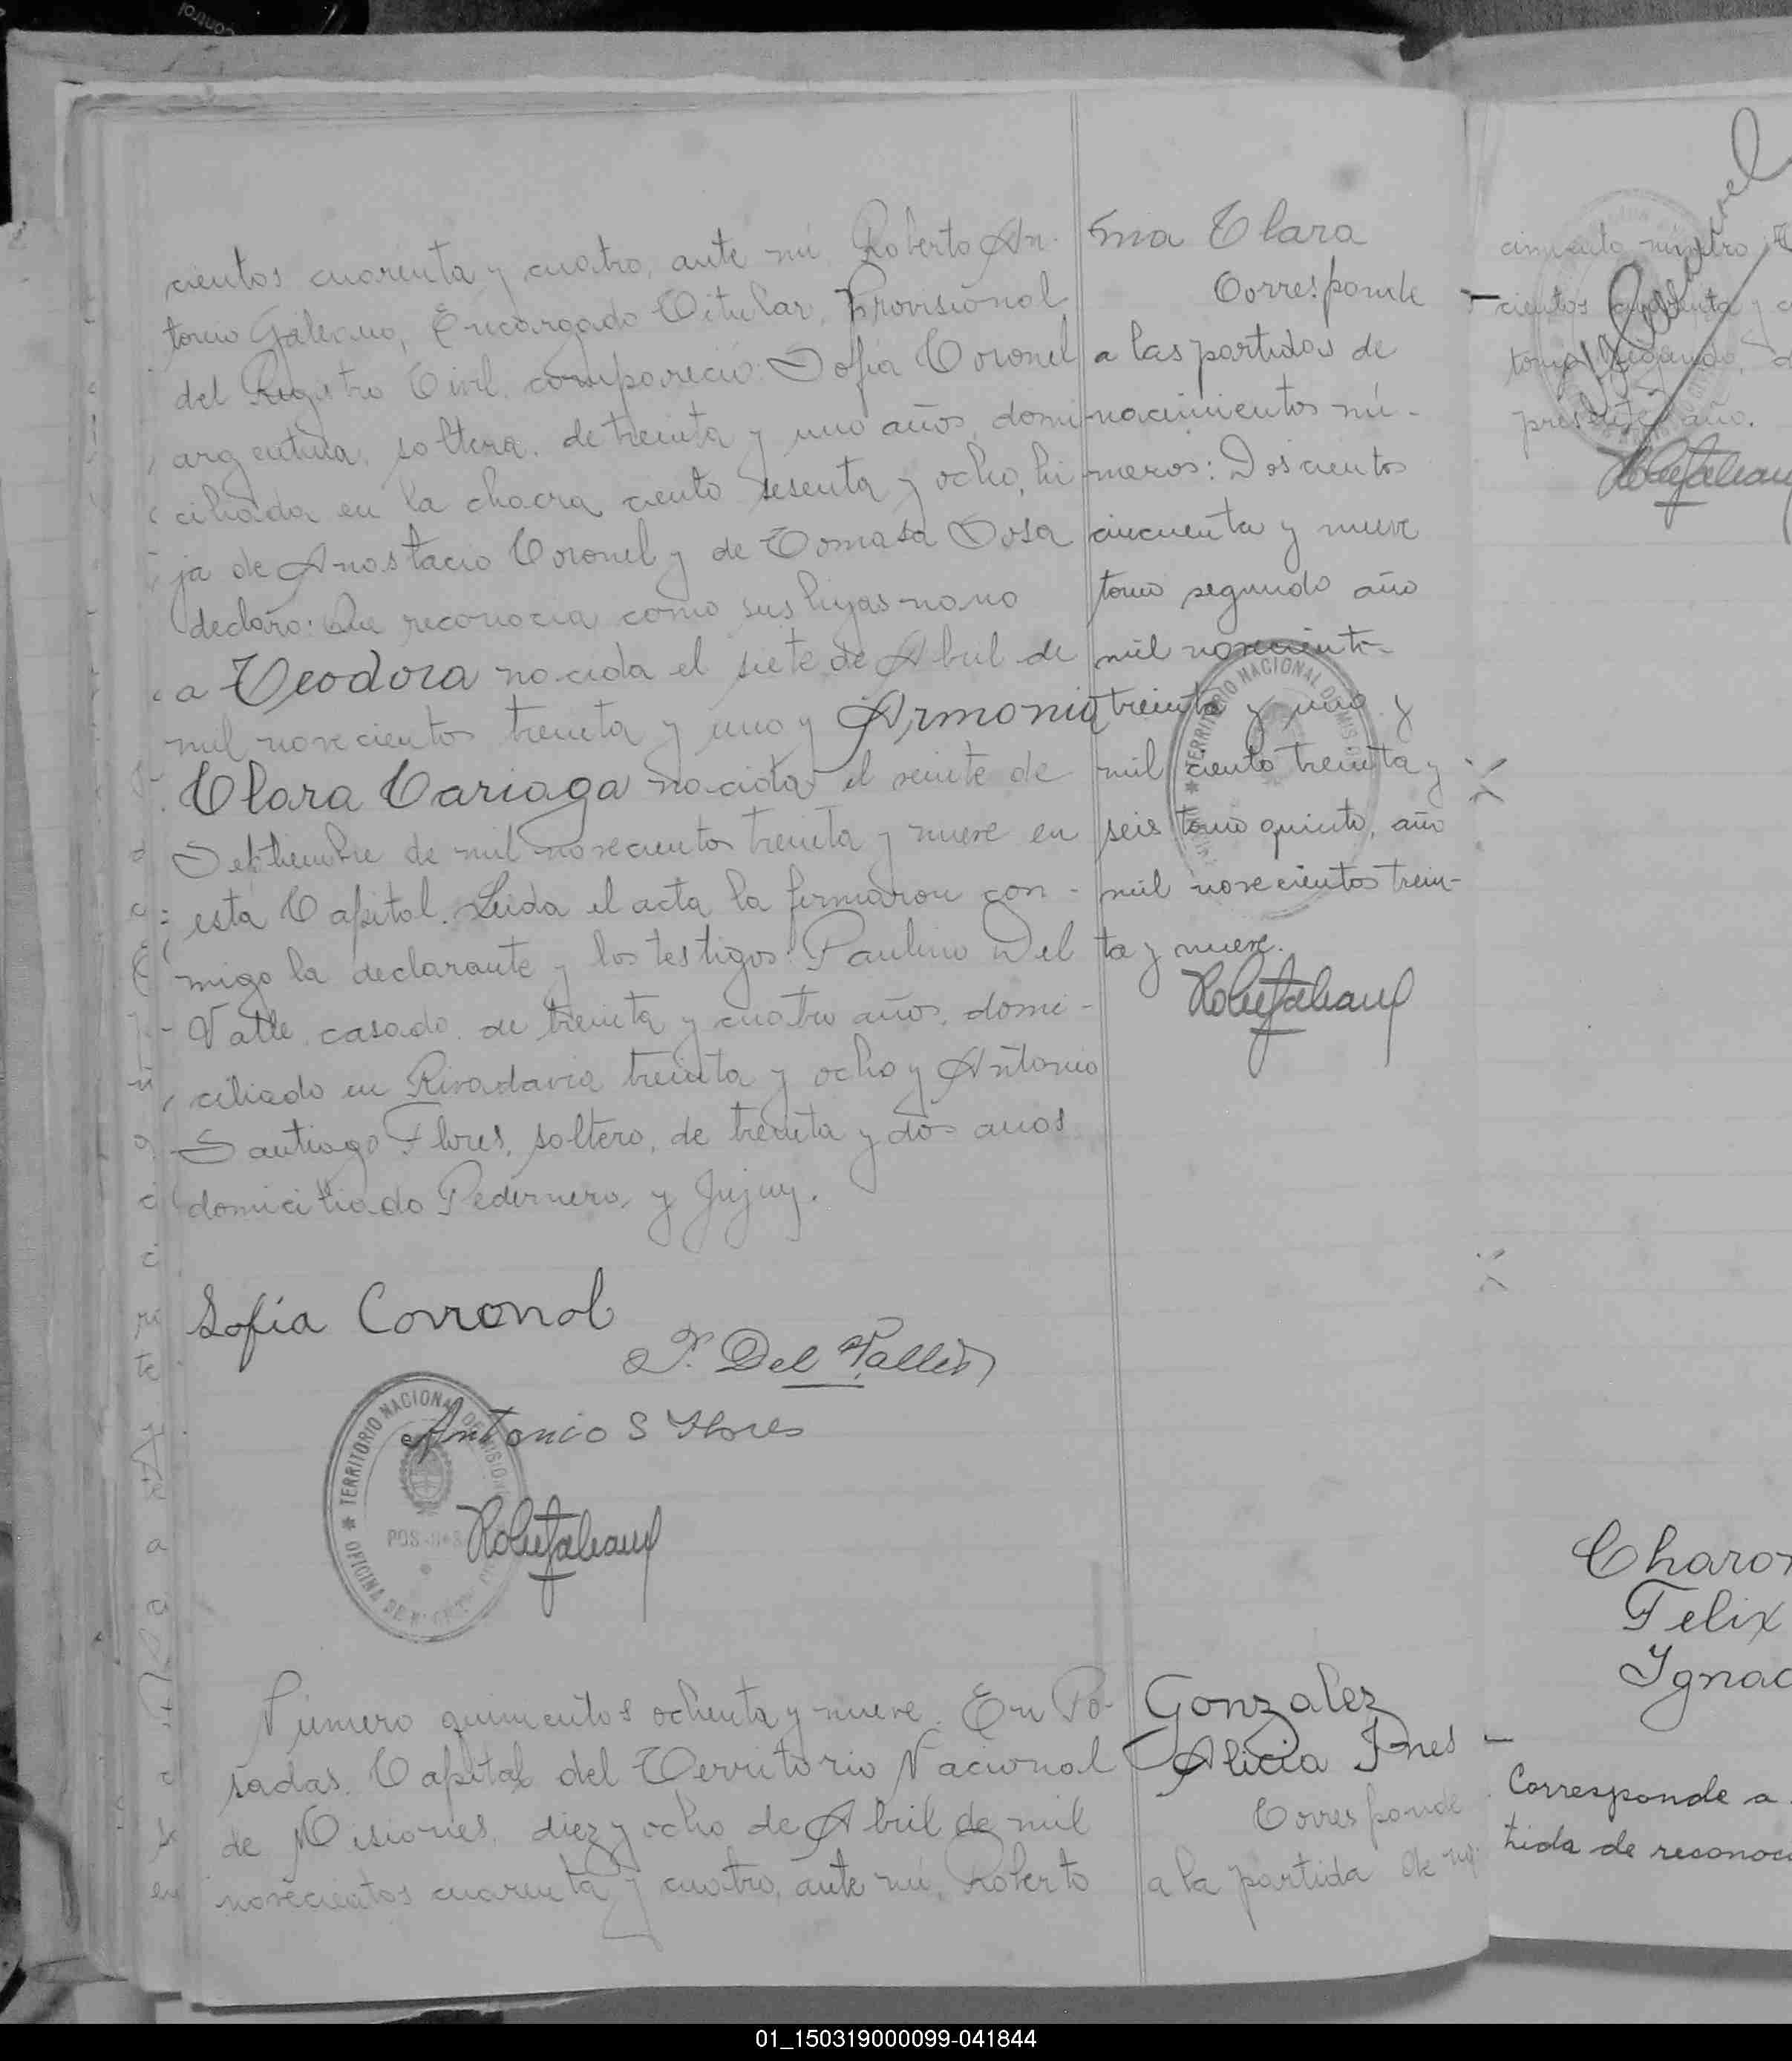 cientos cuarenta y cuatro, ante mí Roberto An-
tonio Galeano, Encargado Titular, Provisional
del Registro Civil, compareció: Sofía Coronel
argentina, soltera, de treinta y uno años, domi
ciliada en la chacra ciento sesenta y ocho, hi
ja de Anastacio Coronel y de Tomasa Sosa
declaro: Que reconocía como sus hijas
a Teodora nacida el siete de Abril de
mil novecientos treinta y uno y Armonia
Clara Cariaga nacida el veinte de
Septiembre de mil novecientos treinta y nueve en
esta Capital. Leida el acta la firmaron con-
migo la declarante y los testigos: Paulino Del
Valle, casado, de treinta y cuatro años, domi-
ciliado en Rivadavia treinta y ocho y Antonio
Santiago Flores, soltero, de treinta y dos anos
domiciliado Pedernera y Jujuy.
Sofia Corronol
P. Del Valle
Antonio S Flores
TERRITORIO NACIONAL DE MISIONES
OFICINA DE
Numero quinientos ochenta y nueve. En Po-
sadas, Capital del Territorio Nacional
de Misiones, diez y ocho de Abril de mil
novecientos cuarenta y cuatro, ante mí, Roberto
nia Clara
Corresponde
a las partidas de
nacimientos nú-
meros: Doscientos
cincuenta y nueve
tomo segundo año
mil noveciento-
treinta y uno y
mil ciento treinta y
seis tomo quinto, año
mil novecientos trein-
ta y nueve.
TERRITORIO NACIONAL DE MIS
Gonzalez
Alicia Ines
Corresponde
a la partida de
cimiento
cientos cuarenta y c
tomo segundo, d
presente año.
Charon
Felix
Ignac
Corresponde a
tida de reconoc
control
01_150319000099-041844